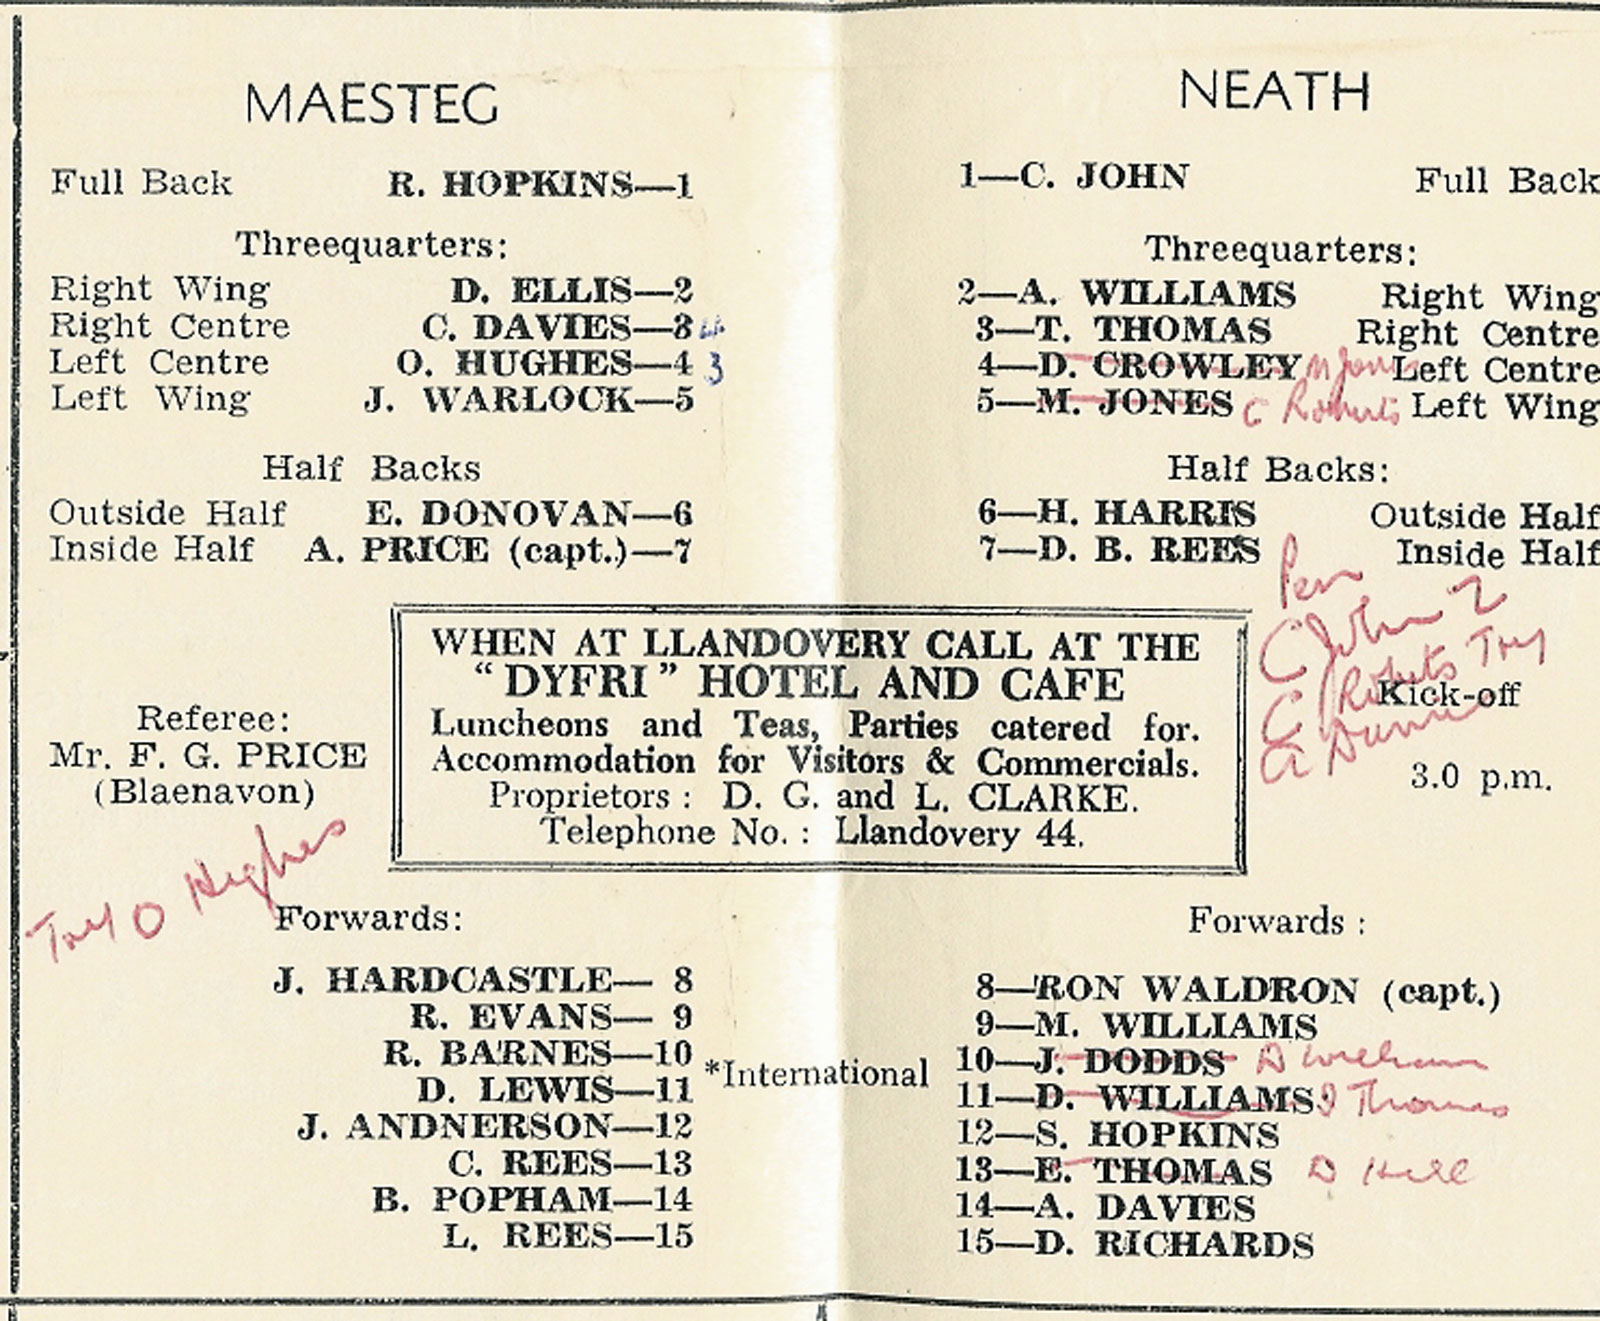 MAESTEG
Full Back R. HOPKINS—1
Threequarters:
Right Wing D. ELLIS—2
Right Centre C. DAVIES—3 4
Left Centre O. HUGHES—4 3
Left Wing J. WARLOCK—5
Half Backs
Outside Half E. DONOVAN—6
Inside Half A. PRICE (capt.)—7
Referee:
Mr. F. G. PRICE
(Blaenavon)
Try O Hughes
Forwards:
J. HARDCASTLE— 8
R. EVANS— 9
R. BARNES—10
D. LEWIS—11
J. ANDNERSON—12
C. REES—13
B. POPHAM—14
L. REES—15
WHEN AT LLANDOVERY CALL AT THE
“DYFRI” HOTEL AND CAFE
Luncheons and Teas, Parties catered for.
Accommodation for Visitors & Commercials.
Proprietors : D. G. and L. CLARKE.
Telephone No. : Llandovery 44.
*International
NEATH
1—C. JOHN Full Back
Threequarters:
2—A. WILLIAMS Right Wing
3—T. THOMAS Right Centre
4—D. CROWLEY M Jones Left Centre
5—M. JONES C Roberts Left Wing
Half Backs:
6—H. HARRIS Outside Half
7—D. B. REES Inside Half
Pen
C John 2
C Roberts Try
Kick-off
3.0 p.m.
Forwards :
8—RON WALDRON (capt.)
9—M. WILLIAMS
10—J. DODDS D William
11—D. WILLIAMS Thomas
12—S. HOPKINS
13—E. THOMAS D Hill
14—A. DAVIES
15—D. RICHARDS